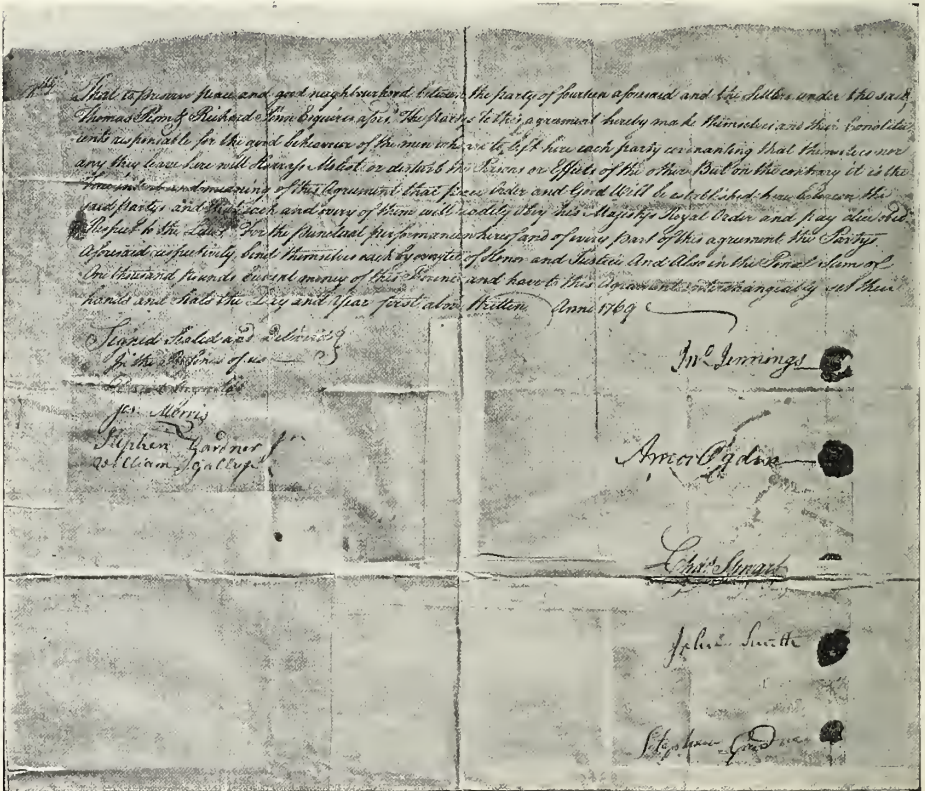 That to preserve peace and good neighbourhood between the party of fourteen aforesaid and the settlers under the said
Thomas Penn & Richard Penn Esquires afors. The partys to this agreement hereby make themselves and their Constitu
ents responsible for the good behaviour of the men to be left here each party covenanting that themselves nor
any they leave here will Harrass Molest or disturb the Persons or Effects of the other But on the contrary it is the
True intent and meaning of this Agreement that peace Order and Good Will be established here between the
said Partys and that each and every of them will obey his Majestys Royal Order and pay due
Respect to the Laws For the punctual performance whereof and of every part of this agreement the Partys
Aforesaid respectively bind themselves each by every tie of Honor and Justice And Also in the Penal Sum of
One thousand pounds current money of this Province and have to this Agreement interchangeably set their
hands and Seals the Day and Year first above Written Anno 1769
Signed Sealed and Delivered
In the Presence of us
Jos. Morris
Stephen Gardner
William Gallup
Jno. Jennings
Amos Ogden
Chas. Stewart
John Smith
Stephen